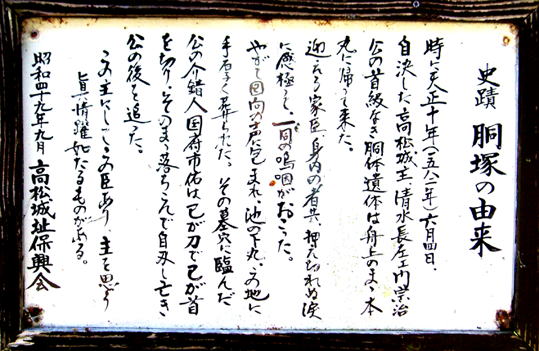 史蹟 胴塚の由来
時に天正十年(一五八二年)六月四日、
自決した高松城主、清水長左ェ門宗治
公の首級なき胴体遺体は舟上のまゝ本
丸に帰って来た。
迎える家臣、身内の者共、押え切れぬ涙
に感極って、一同の嗚咽がおこった。
やがて回向の声に包まれ、池の下丸、この地に
手厚く葬られた。その墓穴に臨んだ
公の介錯人国府市佑は己が刀で己が首
を切り、そのまゝ落ちこんで自刃し亡き
公の後を追った。
この主にしてこの臣あり、主を思う
真情躍如たるものがある。
昭和四十九年九月 高松城址保興会